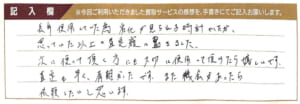 記入欄 ※今回ご利用いただきました買取サービスの感想を、手書きにてご記入お願いします。
長年使用していた為 劣化が見られる時計でしたが、
思っていた以上の査定額に驚きました。
次に使って頂く方にも大切に使用して頂けたら嬉しいです。
査定も早く、満足です。また機会があったら
依頼したいと思います。